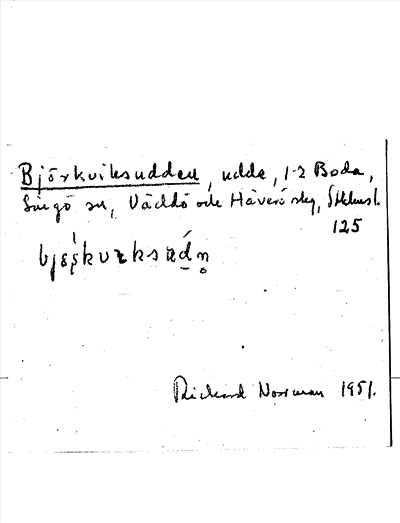 Björkviksudden, udde, 1-2 Boda,
Singö sn, Väddö och Häverö skg, Sthlmsl.
125
Rickard Norrman 1951.